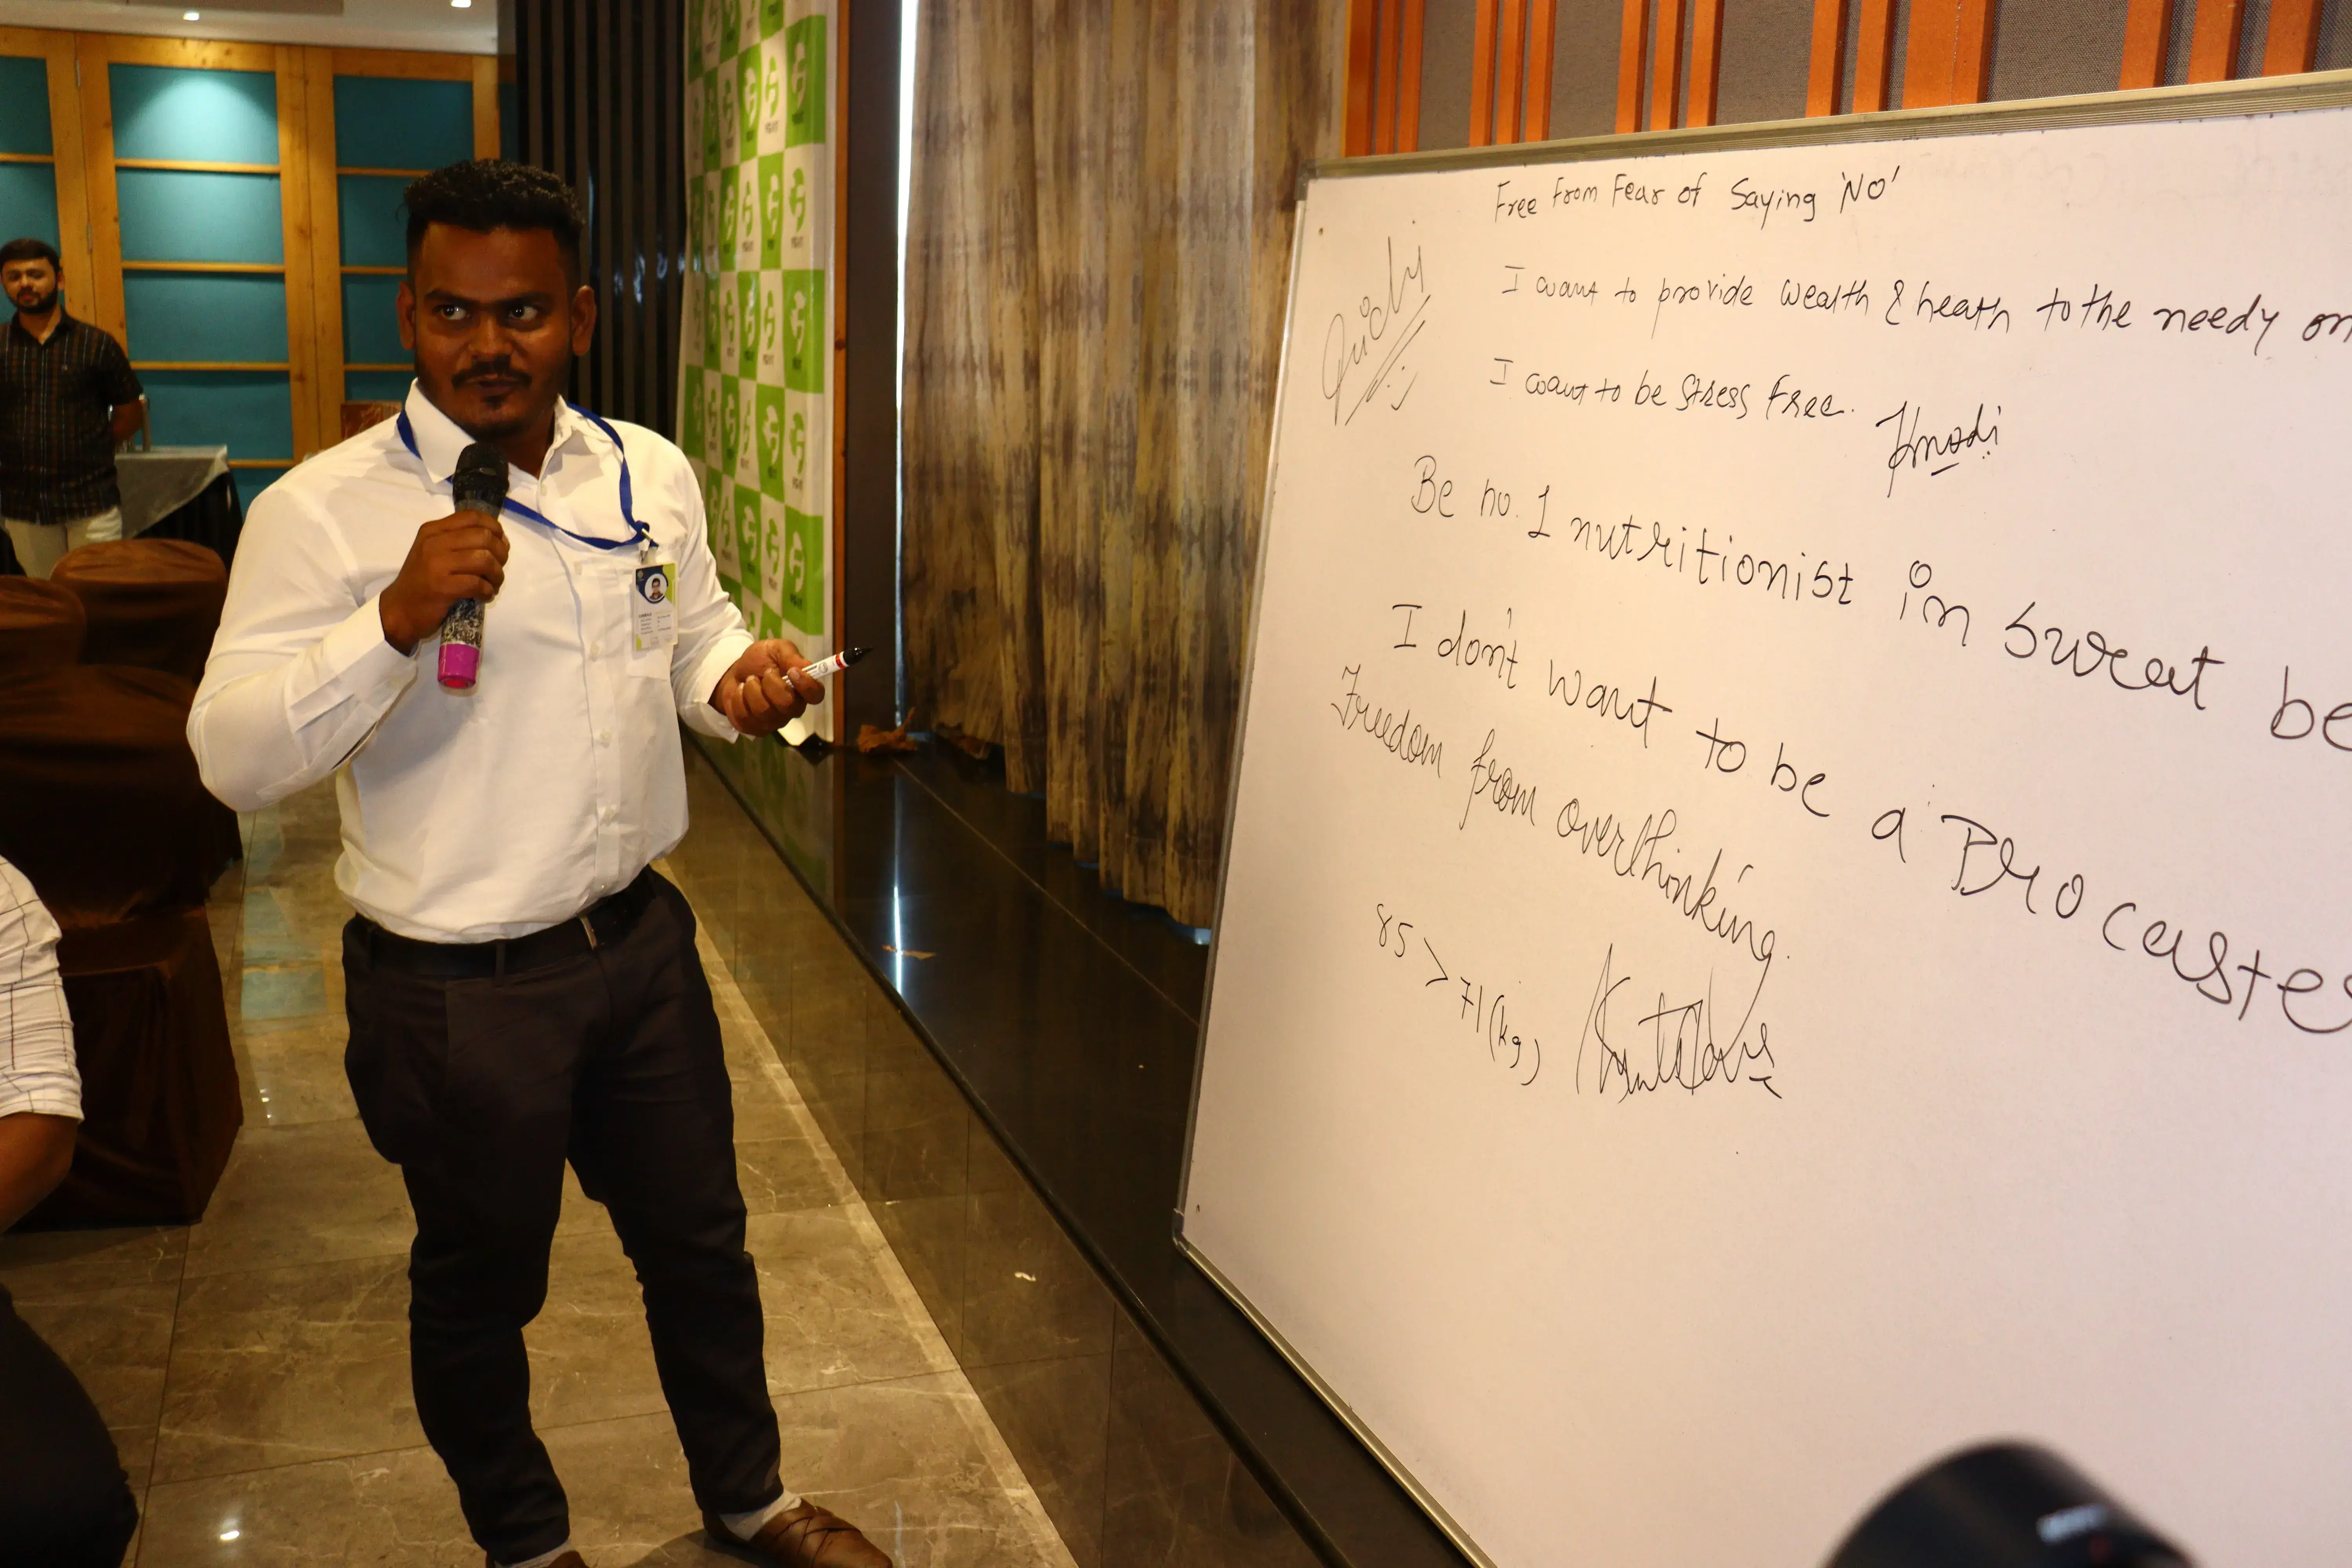 Free From Fear of Saying 'NO'
I want to provide wealth & heath to the needy on
I want to be Stress Free.
Be no. 1 nutritionist in sweat be
I don't want to be a Procaste
Freedom from overthinking.
85 > 71 (kg)